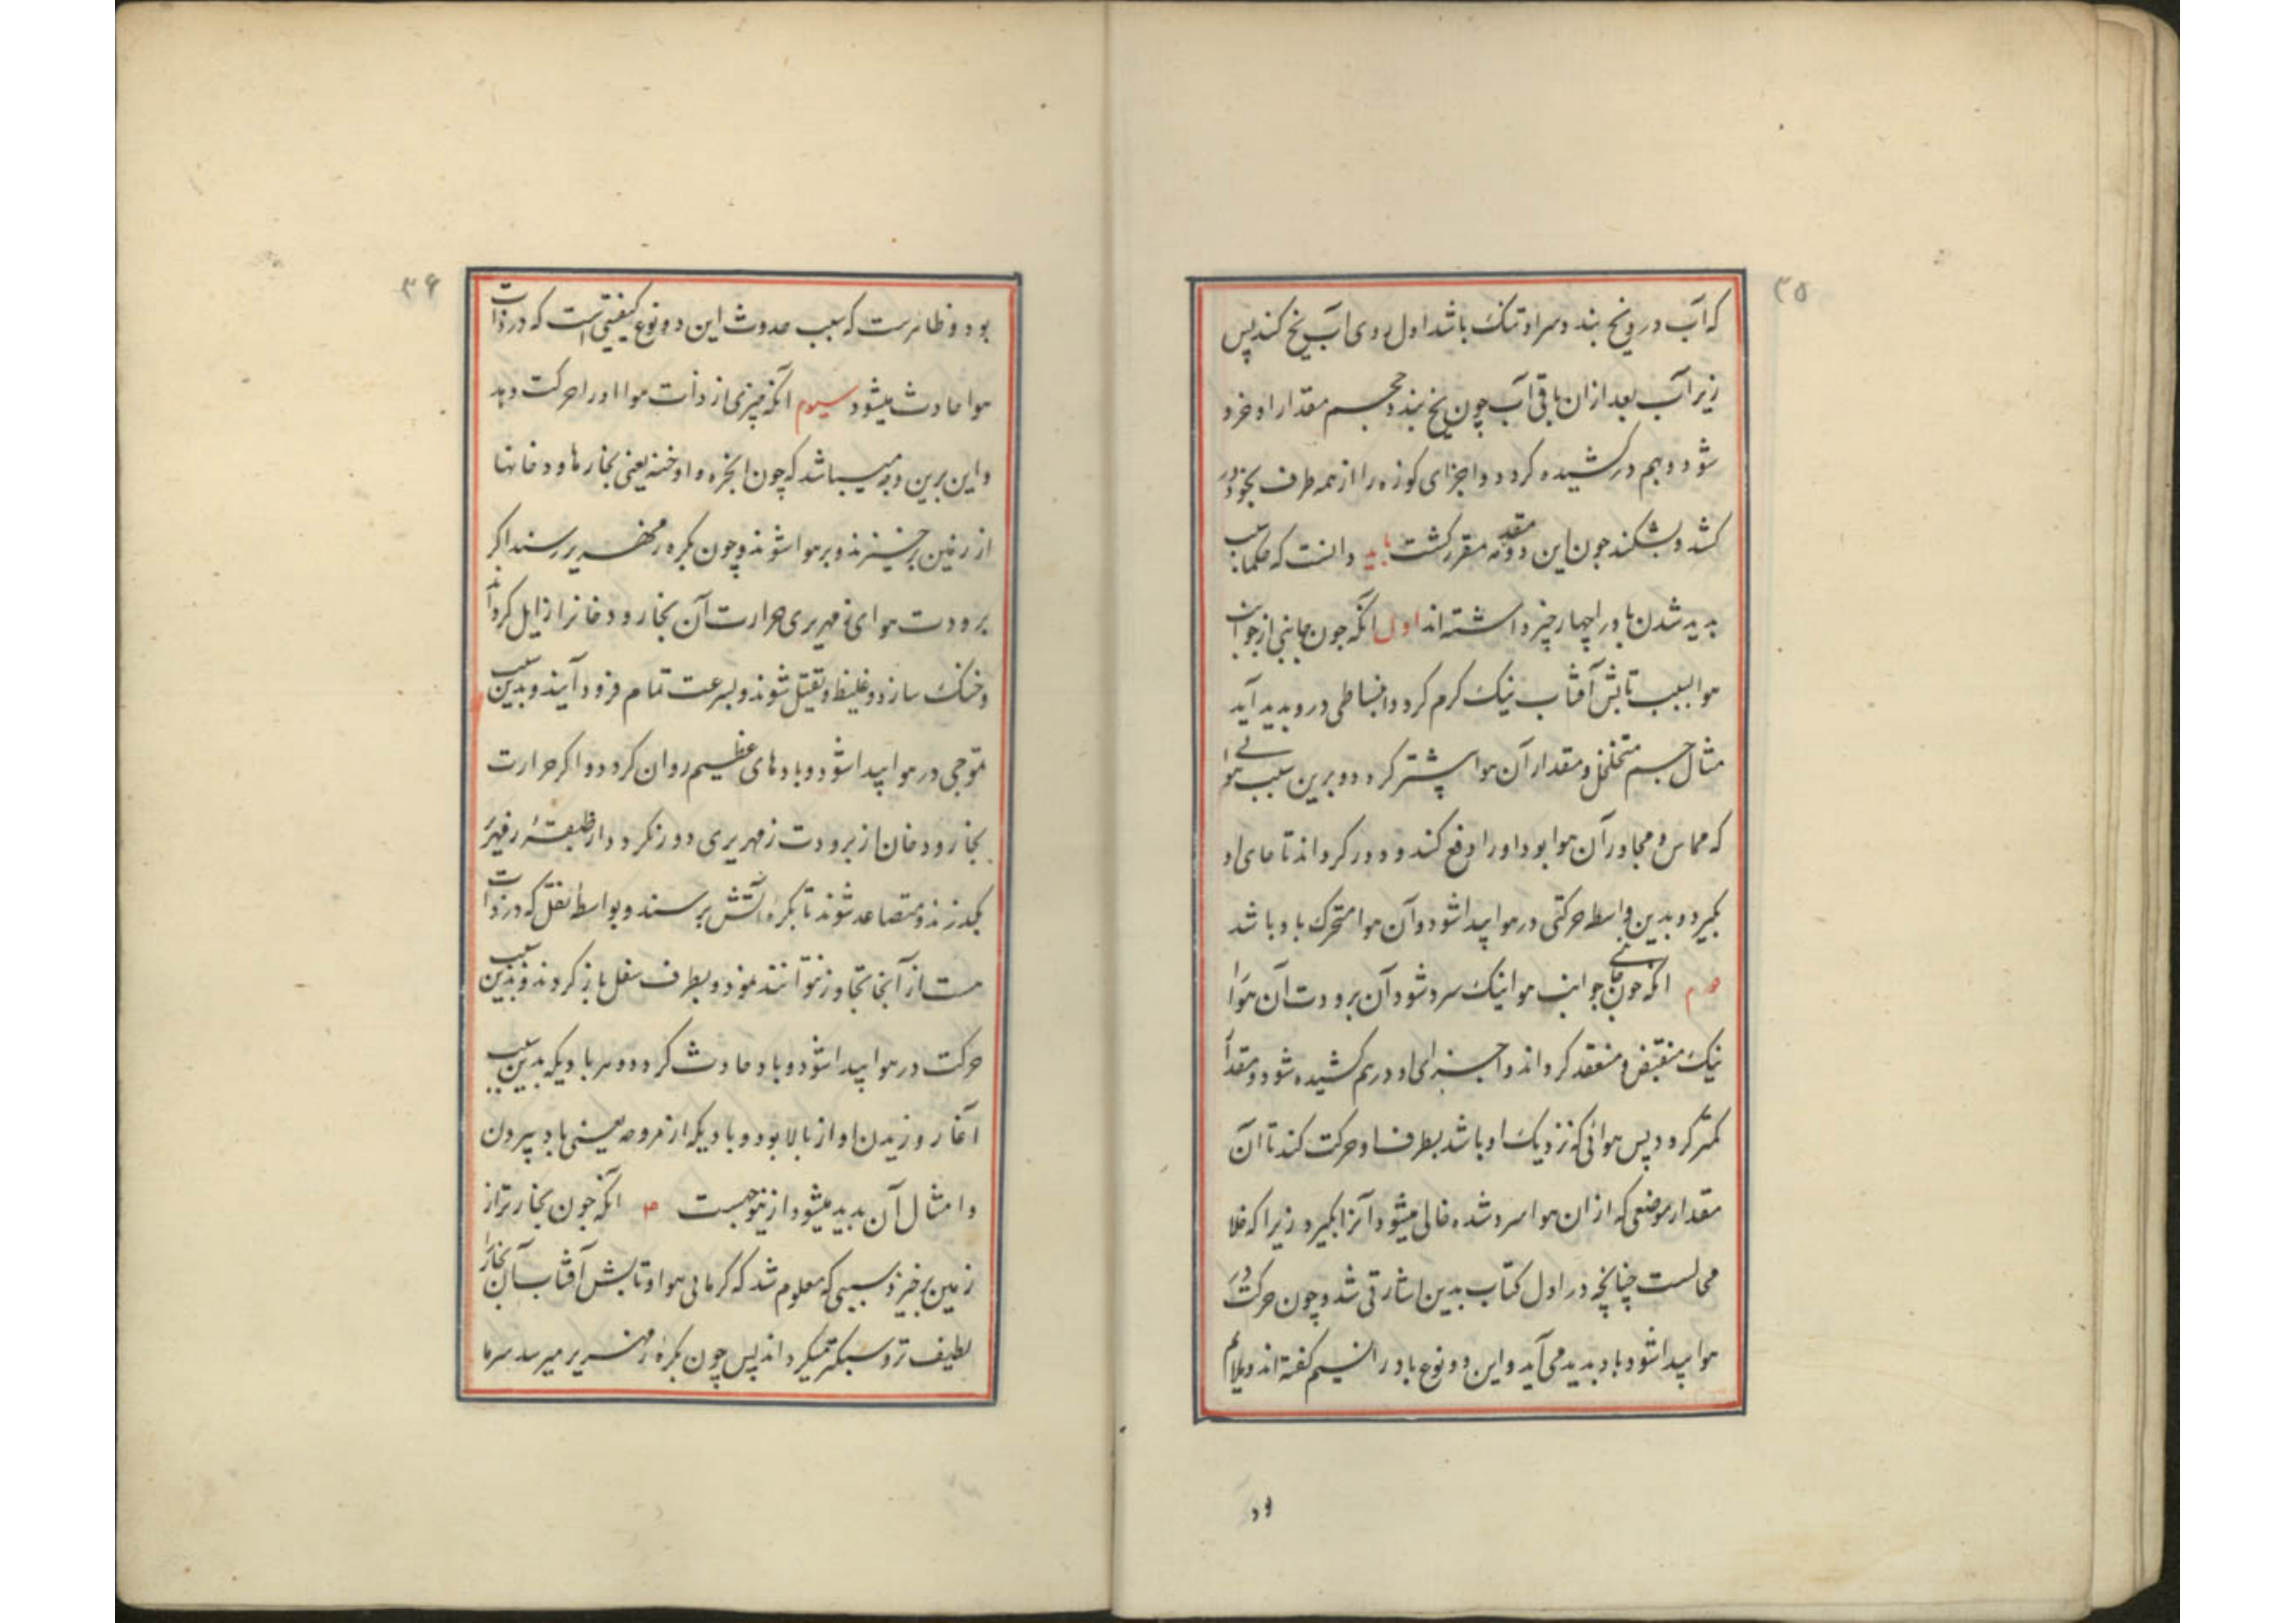 ۳۵
که آب در و یخ بندد و سر او تنک باشد اول روی آب یخ کند پس
زیر آب بعد از ان باقی آب چون یخ بندد و حجم مقدار او خرد
شود و بهم در کشیده کردد و اجزای کوزه را از همه طرف بخود در
کشد و بشکند چون این دو مقدمه مقرر کشت باید دانست که حکما سبب
پدید شدن باد را چهار چیز داشته اند اول آنکه چون جانبی از جوانب
هوا بسبب تابش آفتاب نیک کرم کردد و انبساطی درو پدید آید
مثال جسم متخلخل و مقدار آن هوا بیشتر کردد و برین سبب هوائی
که مماس و مجاور آن هوا بود او را دفع کند و دور کرداند تا جای او
بکیرد و بدین واسطه حرکتی در هوا پیدا شود و آن هوا متحرک باد باشد
دوم آنکه چون جانبی جوانب هوا نیک سرد شود آن برودت آن هوا را
نیک منقبض و منعقد کرداند و اجزای او درهم کشیده شود و مقدار آ
کمتر کردد پس هوائی که نزدیک او باشد بطرف او حرکت کند تا آن
مقدار موضعی که از ان هوا سرد شده خالی میشود آنرا بکیرد زیرا که خلا
محالست چنانچه در اول کتاب بدین اشارتی شد و چون حرکت در
هوا پیدا شود باد پدید می آید و این دو نوع باد را نسیم کفته اند و ملایم
۳۶
بود و ظاهرست که سبب حدوث این دو نوع کیفیتی است که در ذات
هوا حادث میشود سیوم آنکه چیزی از ذات هوا او را حرکت دهد
و این برین وجه میباشد که چون ابخره و ادخنه یعنی بخارها و دخانها
از زمین برخیزند و بر هوا شوند و چون بکره زمهریر رسند اکر
برودت هوای زمهریری حرارت آن بخار و دخانرا زایل کرداند
و خنک سازد و غلیظ و ثقیل شوند و بسرعت تمام فرود آیند و بدین سبب
تموجی در هوا پیدا شود و بادهای عظیم روان کردد و اکر حرارت
بخار و دخان از برودت زمهریری دور نکردد و از طبقۀ زمهریر
بکذرند و متصاعد شوند تا بکره آتش برسند و بواسطه ثقل که در ذات
هست از آنجا تجاوز نتوانند نمود و بطرف سفل باز کردند و بدین سبب
حرکت در هوا پیدا شود و باد حادث کردد و هر بادیکه بدین سبب
آغاز وزیدن او از بالا بود و بادیکه از مروحه یعنی باد بیزن
و امثال آن پدید میشود ازینوجهست م آنکه چون بخار تر از
زمین برخیزد بسببی که معلوم شد که کرمائی هوا و تابش آفتاب آن بخار را
لطیف تر و سبکتر میکرداند پس چون بکرۀ زمهریر میرسد سرما